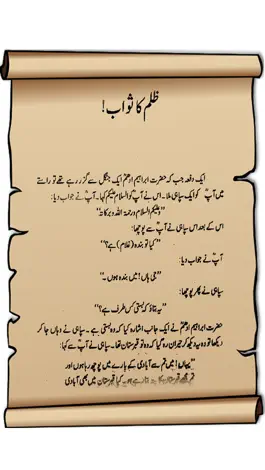 ظلم کا ثواب!
ایک دفعہ جب کہ حضرت ابراہیم ادھمؒ ایک جنگل سے گزر رہے تھے تو راستے
میں آپؒ کو ایک سپاہی ملا۔ اس نے آپؒ کو السلام علیکم کہا۔ آپؒ نے جواب دیا:
”وعلیکم السلام ورحمۃ اللہ وبرکاتہ“
اس کے بعد اس سپاہی نے آپؒ سے پوچھا:
”کیا تو بندہ (غلام) ہے؟“
آپؒ نے جواب دیا:
”جی ہاں! میں بندہ ہوں۔“
سپاہی نے پھر پوچھا:
”یہ بتاؤ کہ بستی کس طرف ہے؟“
حضرت ابراہیم ادھمؒ نے ایک جانب اشارہ کیا کہ وہ بستی ہے۔ سپاہی نے وہاں جا کر
دیکھا تو وہ یہ دیکھ کر حیران رہ گیا کہ وہ تو قبرستان تھا۔ سپاہی نے آپؒ سے کہا:
”میں تم سے آبادی کے بارے میں پوچھ رہا ہوں اور
تم مجھے قبرستان کا پتہ بتا رہے ہو۔ کیا قبرستان میں بھی آبادی